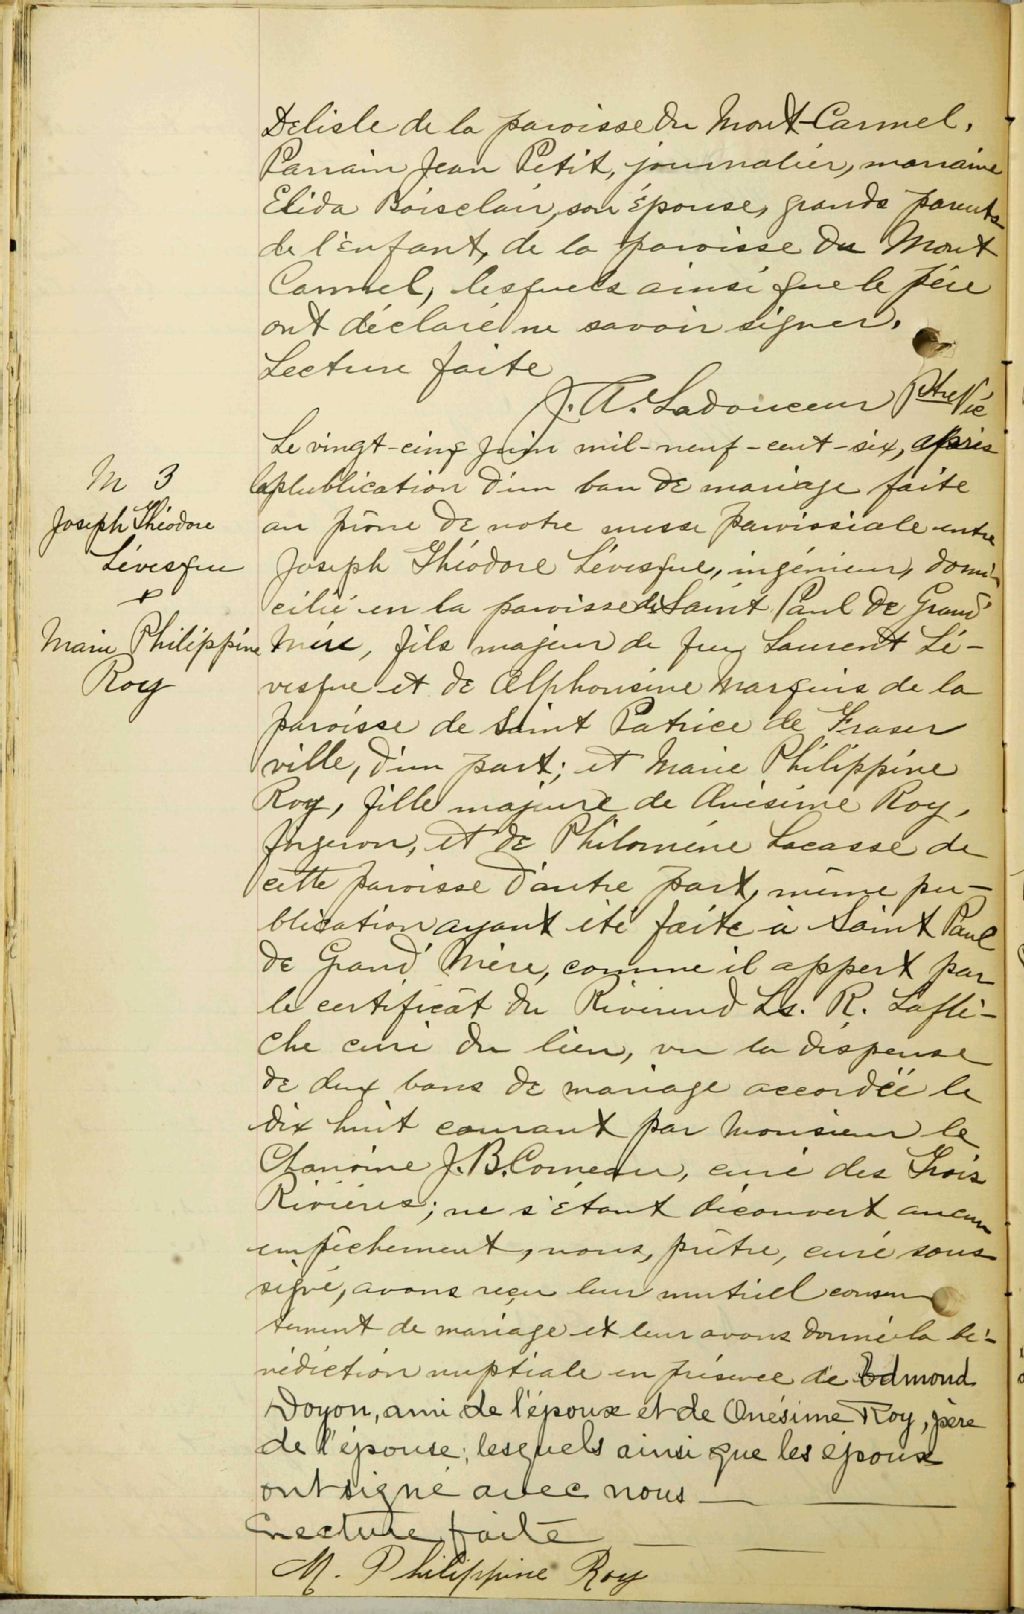 Delisle de la paroisse du Mont-Carmel.
Parrain Jean Petit, journalier, marraine
Elida Boisclair, son épouse, grands parents
de l'enfant, de la paroisse du Mont
Carmel, lesquels ainsi que le père
ont déclaré ne savoir signer.
Lecture faite
J. A. Ladouceur Ptre Vic
M 3
Joseph Théodore
Lévesque
+
Marie Philippine
Roy
Le vingt-cinq juin mil-neuf-cent-six, après
la publication d'un ban de mariage faite
au prône de notre messe paroissiale entre
Joseph Théodore Lévesque, ingénieur, domi-
cilié en la paroisse de Saint Paul de Grand'
Mère, fils majeur de feu Laurent Lé-
vesque et de Alphonsine Marquis de la
paroisse de Saint Patrice de Fraser
ville, d'un part; et Marie Philippine
Roy, fille majeure de Onésime Roy,
forgeron, et de Philomène Lacasse de
cette paroisse d'autre part, même pu-
blication ayant été faite à Saint Paul
de Grand' Mère, comme il appert par
le certificat du Révérend Ls. R. Laflè-
che curé du lieu, vu la dispense
de deux bans de mariage accordée le
dix huit courant par Monsieur le
Chanoine J. B. Comeau, curé des Trois
Rivières; ne s'étant découvert aucun
empêchement, nous, prêtre, curé sous
signé, avons reçu leur mutuel consen
tement de mariage et leur avons donné la bé-
nédiction nuptiale en présence de Edmond
Doyon, ami de l'époux et de Onésime Roy, père
de l'épouse; lesquels ainsi que les époux
ont signé avec nous —
Lecture faite —
M. Philippine Roy